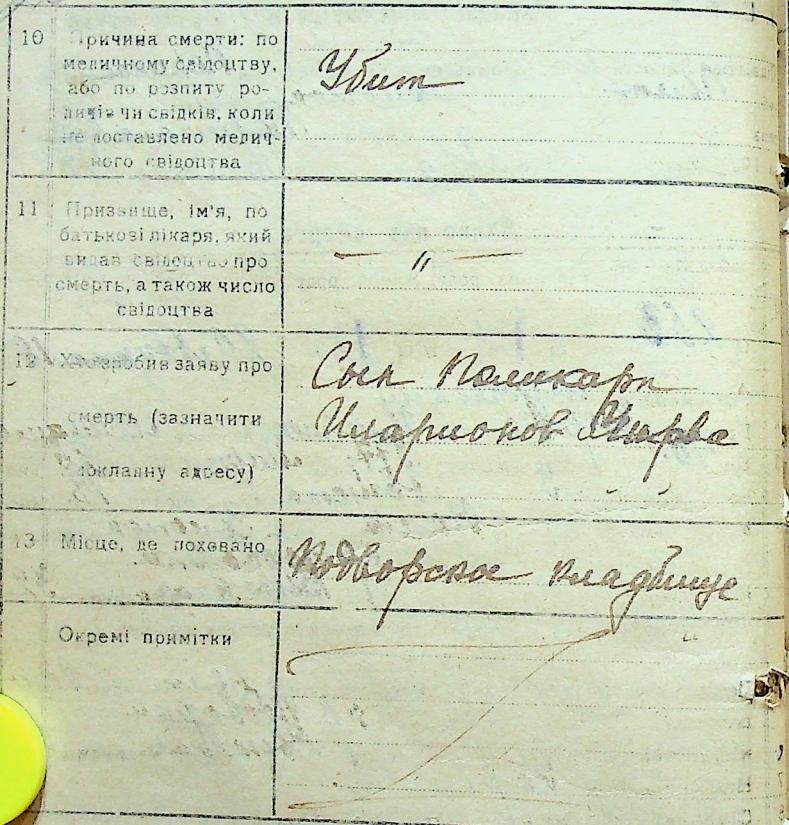 10 Причина смерти: по
медичному свідоцтву,
або по розпиту ро-
дичів чи свідків, коли
не доставлено медич-
ного свідоцтва
Убит
11 Призвище, ім'я, по
батькові лікаря, який
видав свідоцтво про
смерть, а також число
свідоцтва
— " —
12 Хто зробив заяву про
смерть (зазначити
докладну адресу)
Сын Поликарп
Иларионов Чирва
13 Місце, де поховано
Подворское кладбище
Окремі примітки